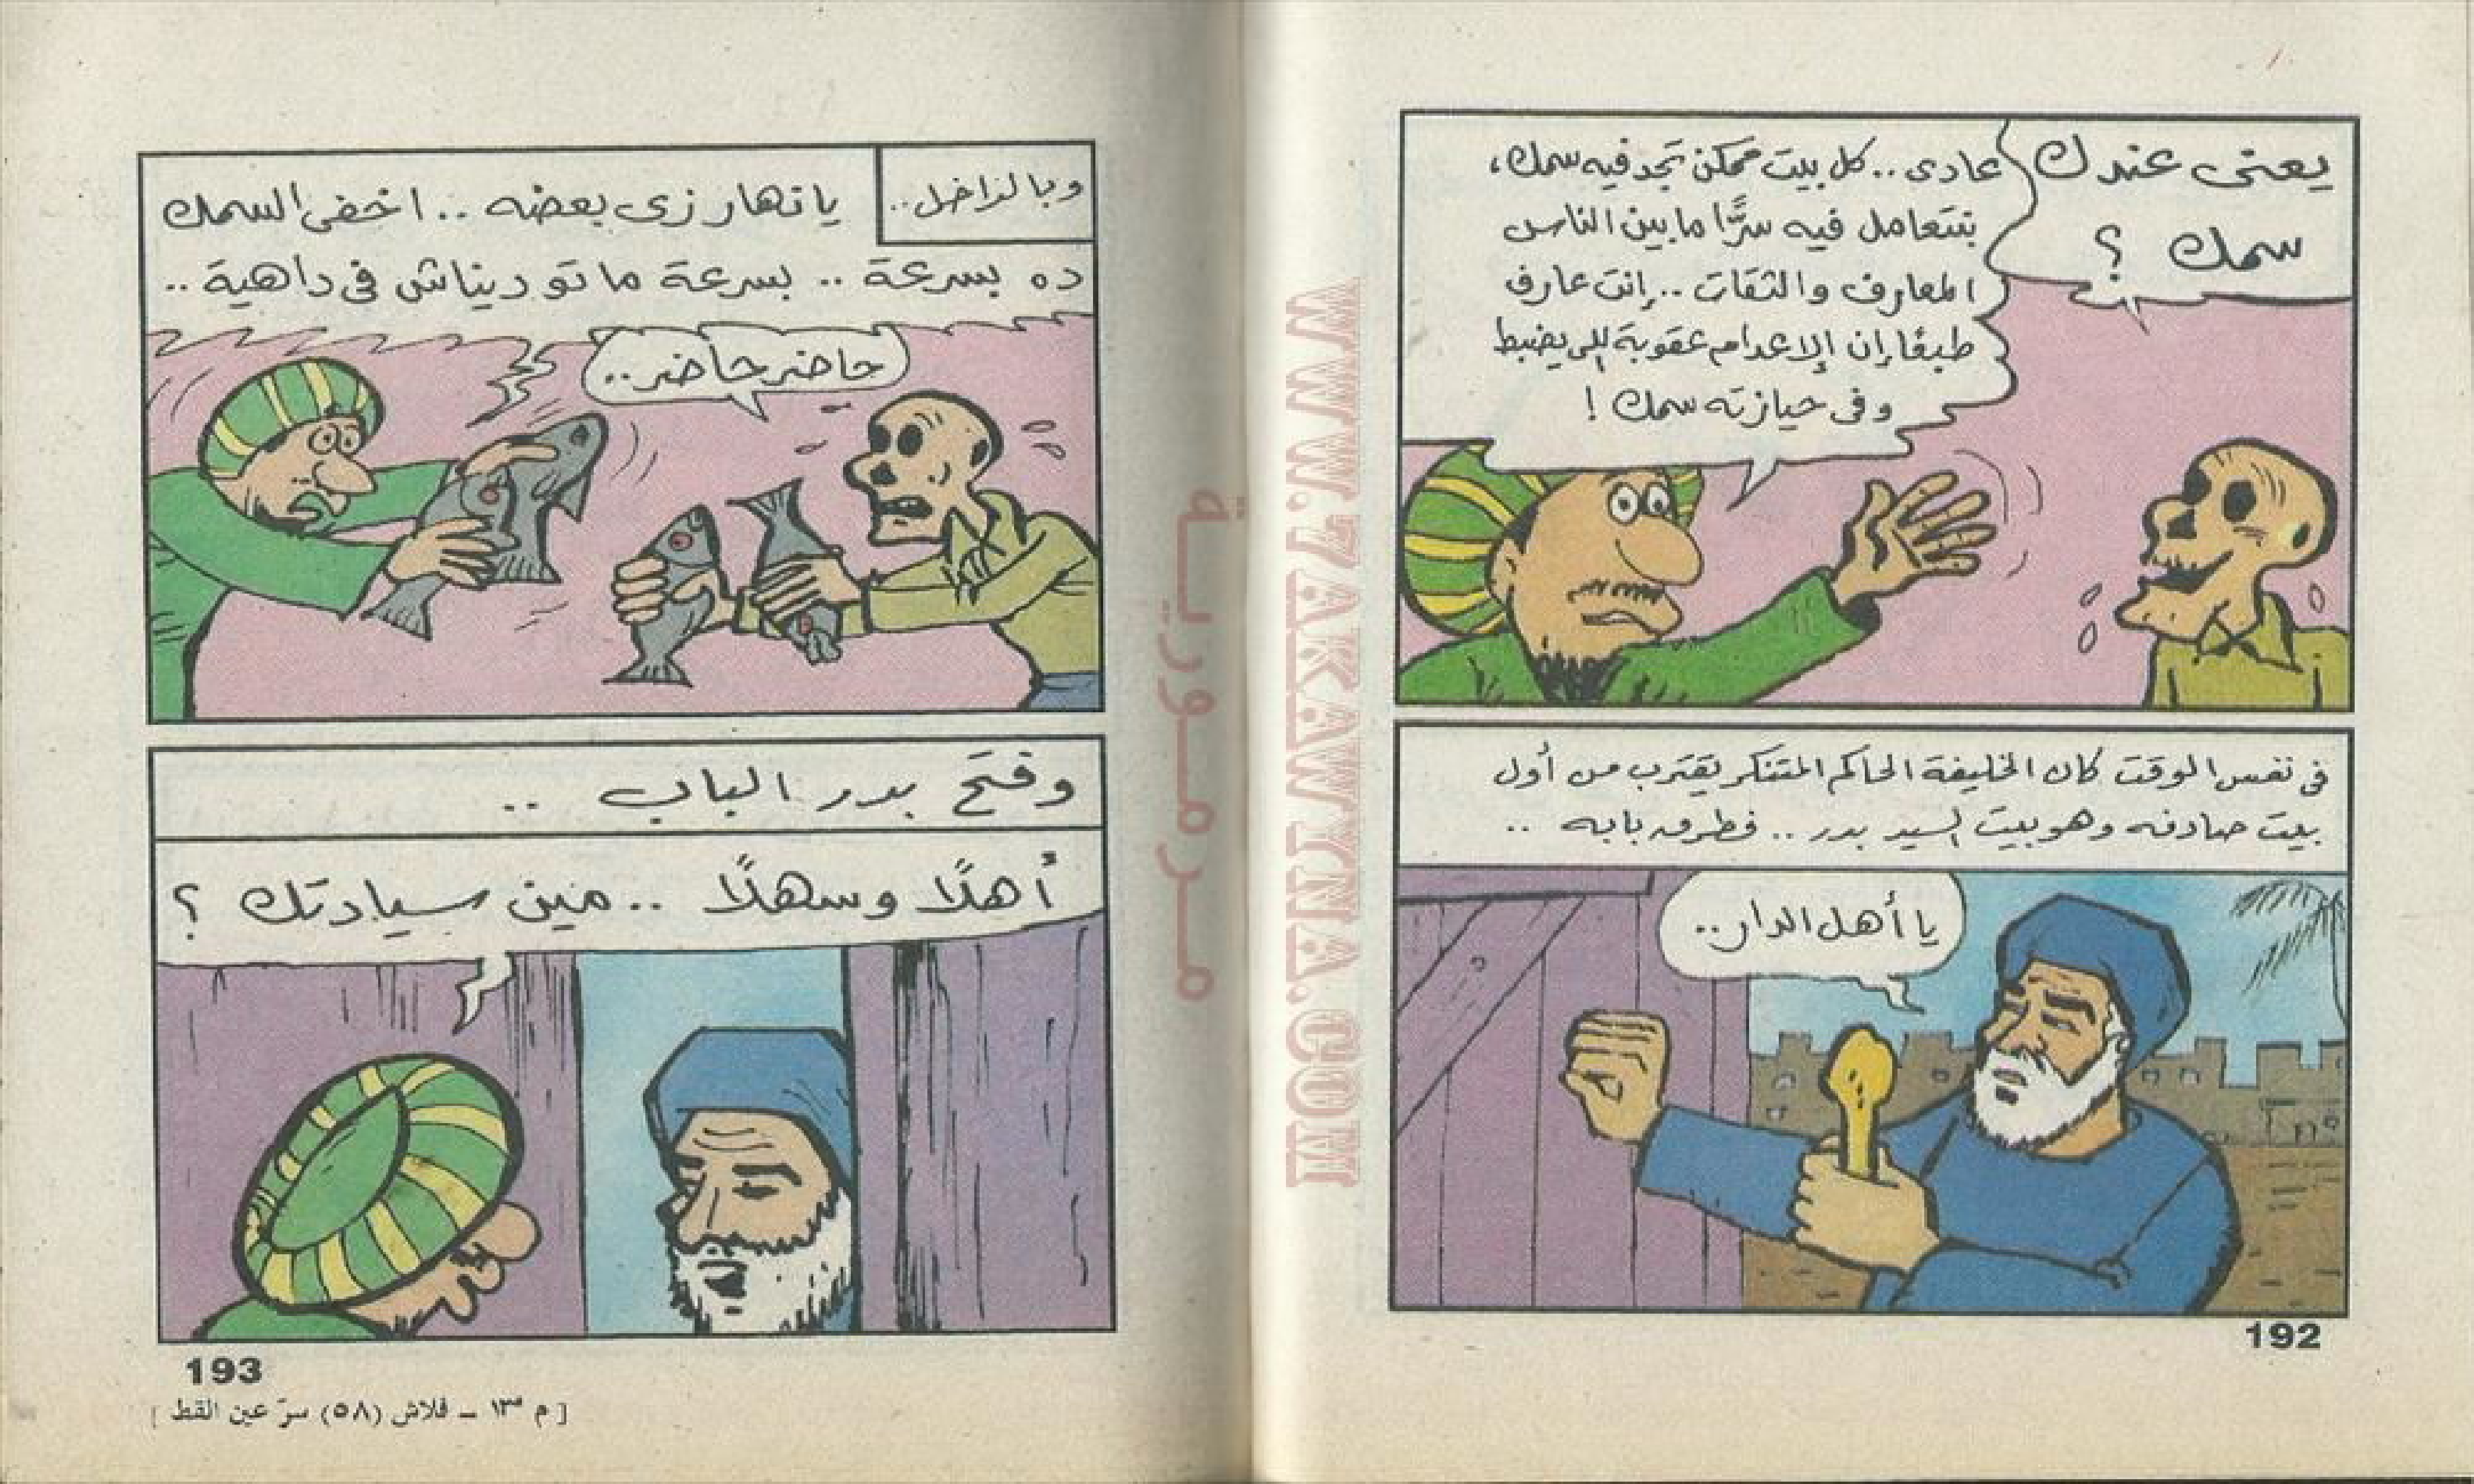 يعنى عندك
سمك ؟
عادى .. كل بيت ممكن تجد فيه سمك ،
بنتعامل فيه سرًّا ما بين الناس
المعارف والثقات .. إنت عارف
طبعًا إن الإعدام عقوبة اللى يضبط
وفى حيازته سمك !
فى نفس الوقت كان الخليفة الحاكم المتنكر يقترب من أول
بيت صادفه وهو بيت السيد بدر .. فطرق بابه ..
يا أهل الدار ..
192
وبالداخل ..
يا نهار زى بعضه .. اخفى السمك
ده بسرعة .. بسرعة ما توديناش فى داهية ..
حاضر حاضر ..
وفتح بدر الباب ..
أهلًا وسهلًا .. مين سيادتك ؟
193
[ م ١٣ – فلاش (٥٨) سرّ عين القط ]
مرمورية
WWW.7AKAWYNA.COM